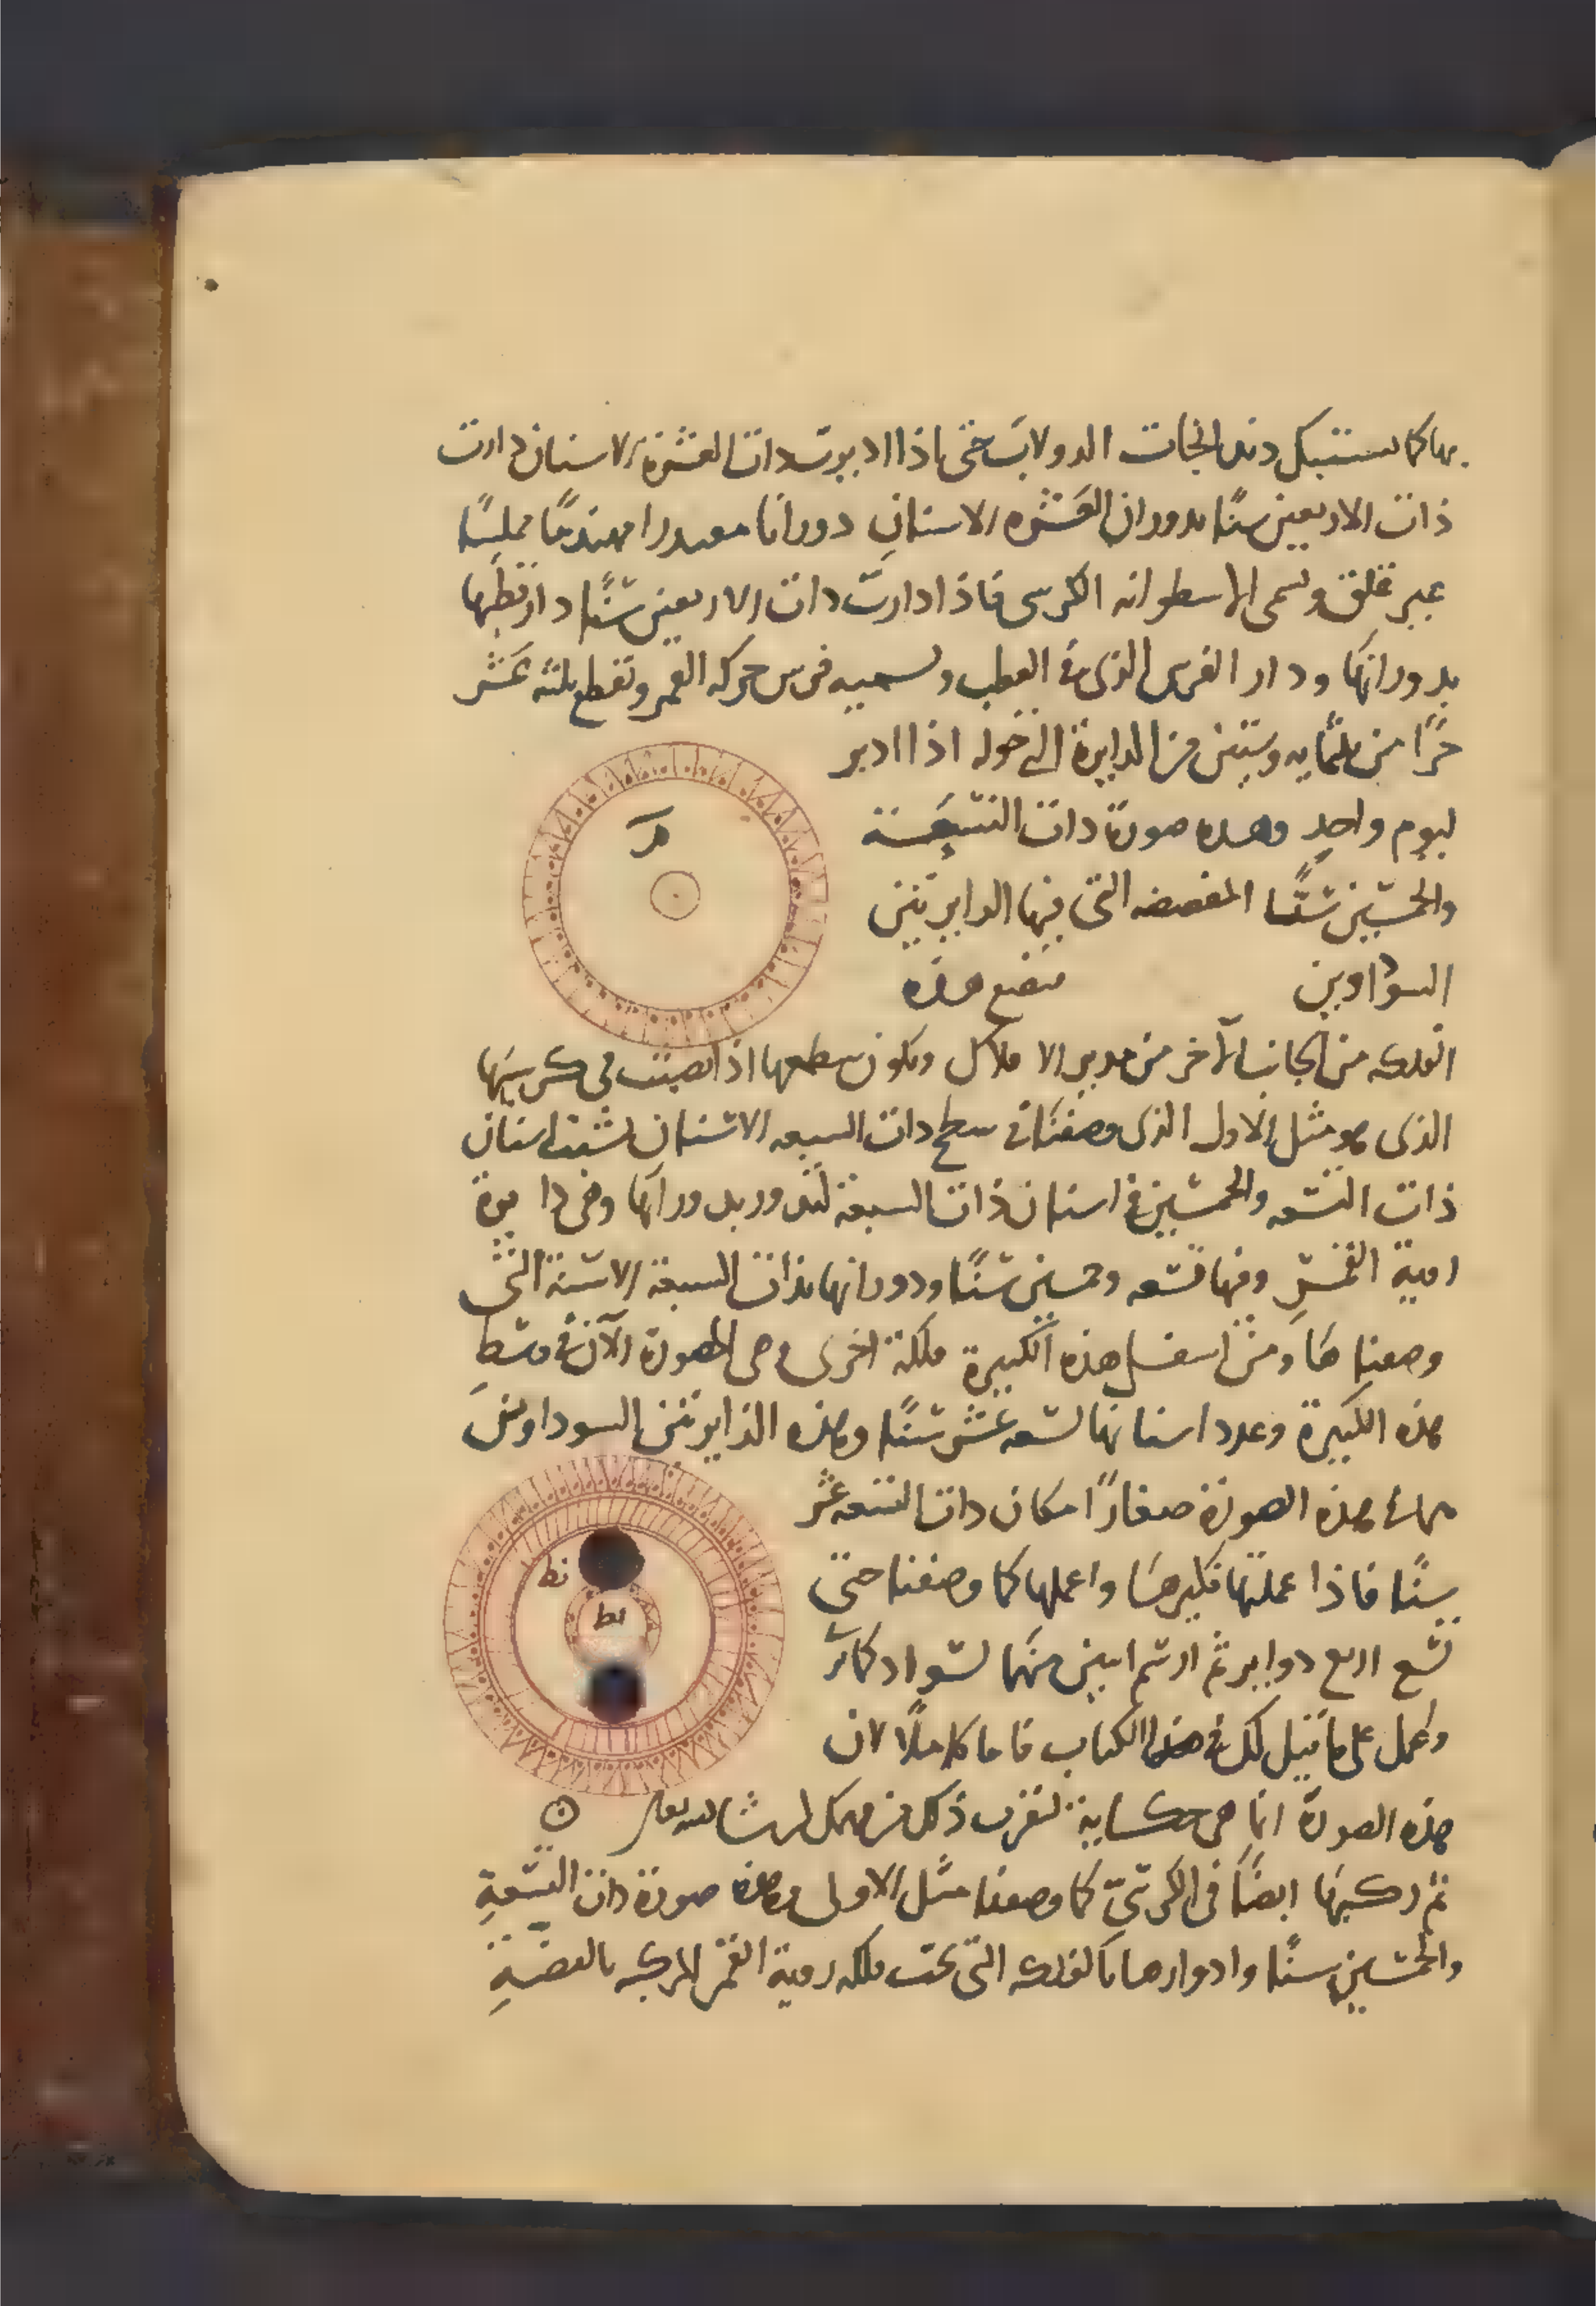 بها كما تستبك دندانجات الدولاب حتى اذا اديرت ذات العشرة الاسنان دارت
ذات الاربعين سنًا بدوران العشره الاسنان دورانا مهندمًا مملسًا
غير قلق وتسمى الاسطوانه الكرسى فاذا ادارت ذات الاربعين سنًا دار قطبها
بدورانها ودار القرص الذى فى القطب وتسميه قرص حركه القمر وتقطع ثلثه عشر
جزًا من ثلثمايه وستين من الدايرة التى حوله اذا ادير
ليوم واحد وهذه صورة ذات التسعة
والخمسين سنًا المفصصه التى فيها الدايرتين
السوداوين فتضع هذه
الفلكه من الجانب الآخر من مدير الافلاك ويكون سطحها اذا نصبت فى كرسيها
الذى هو مثل الاول الذى وصفنا فى سطح ذات السبعه الاسنان اسنان
ذات التسعه والخمسين فى اسنان ذات السبعة لتدور بدورانها وهى دايرة
رمية القمر وفيها تسعه وخمسين سنًا ودورانها بذات السبعة الاسنة التى
وصفناها ومن اسفل هذه الكبيرة فلكة اخرى وهى المصورة الآن فى وسط
هذه الكبيرة وعدد اسنانها تسعه عشر سنًا وهذه الدايرتين السوداوين
هذه الصورة صغارًا مكان ذات التسعه عشر
سنًا فاذا عملتها فكبرها واعملها كما وصفنا حتى
تسع اربع دواير ثم ارسم ابين منهما لسواد
واعمل على ما قيل لك فى هذا الكتاب قاما كاملًا لان
هذه الصورة انما هى حكاية لتقرب ذلك من فهمك ان شا الله تعالى
ثم ركبها ايضًا فى الكرسىّ كما وصفنا مثل الاولى وهذه صورة ذات التسعة
والخمسين سنًا وادوارها بالفلكه التى تحت فلكه رمية القمر المركبه بالفضة
مر
نط
ىط